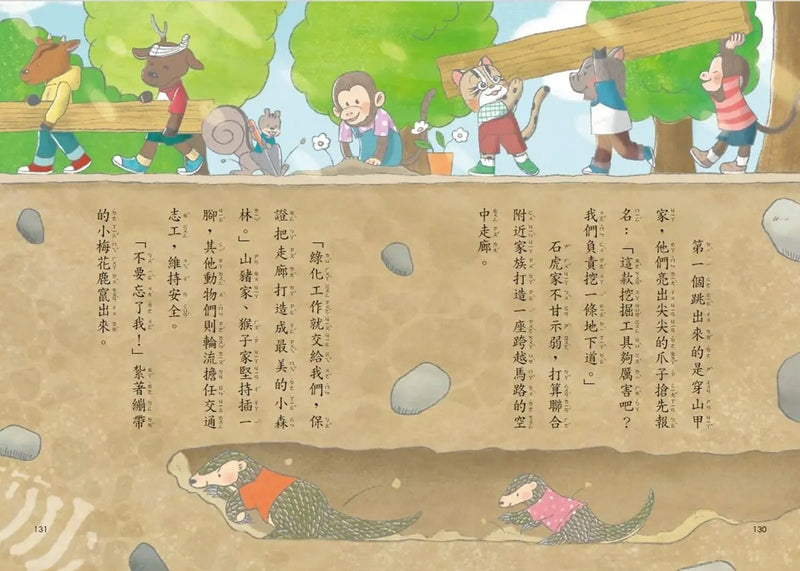 第一個跳出來的是穿山甲
家，他們亮出尖尖的爪子搶先報
名：「這款挖掘工具夠厲害吧？
我們負責挖一條地下道。」
石虎家不甘示弱，打算聯合
附近家族打造一座跨越馬路的空
中走廊。
「綠化工作就交給我們，保
證把走廊打造成最美的小森
林。」山豬家、猴子家堅持插一
腳，其他動物們則輪流擔任交通
志工，維持安全。
「不要忘了我！」紮著繃帶
的小梅花鹿竄出來。
131
130